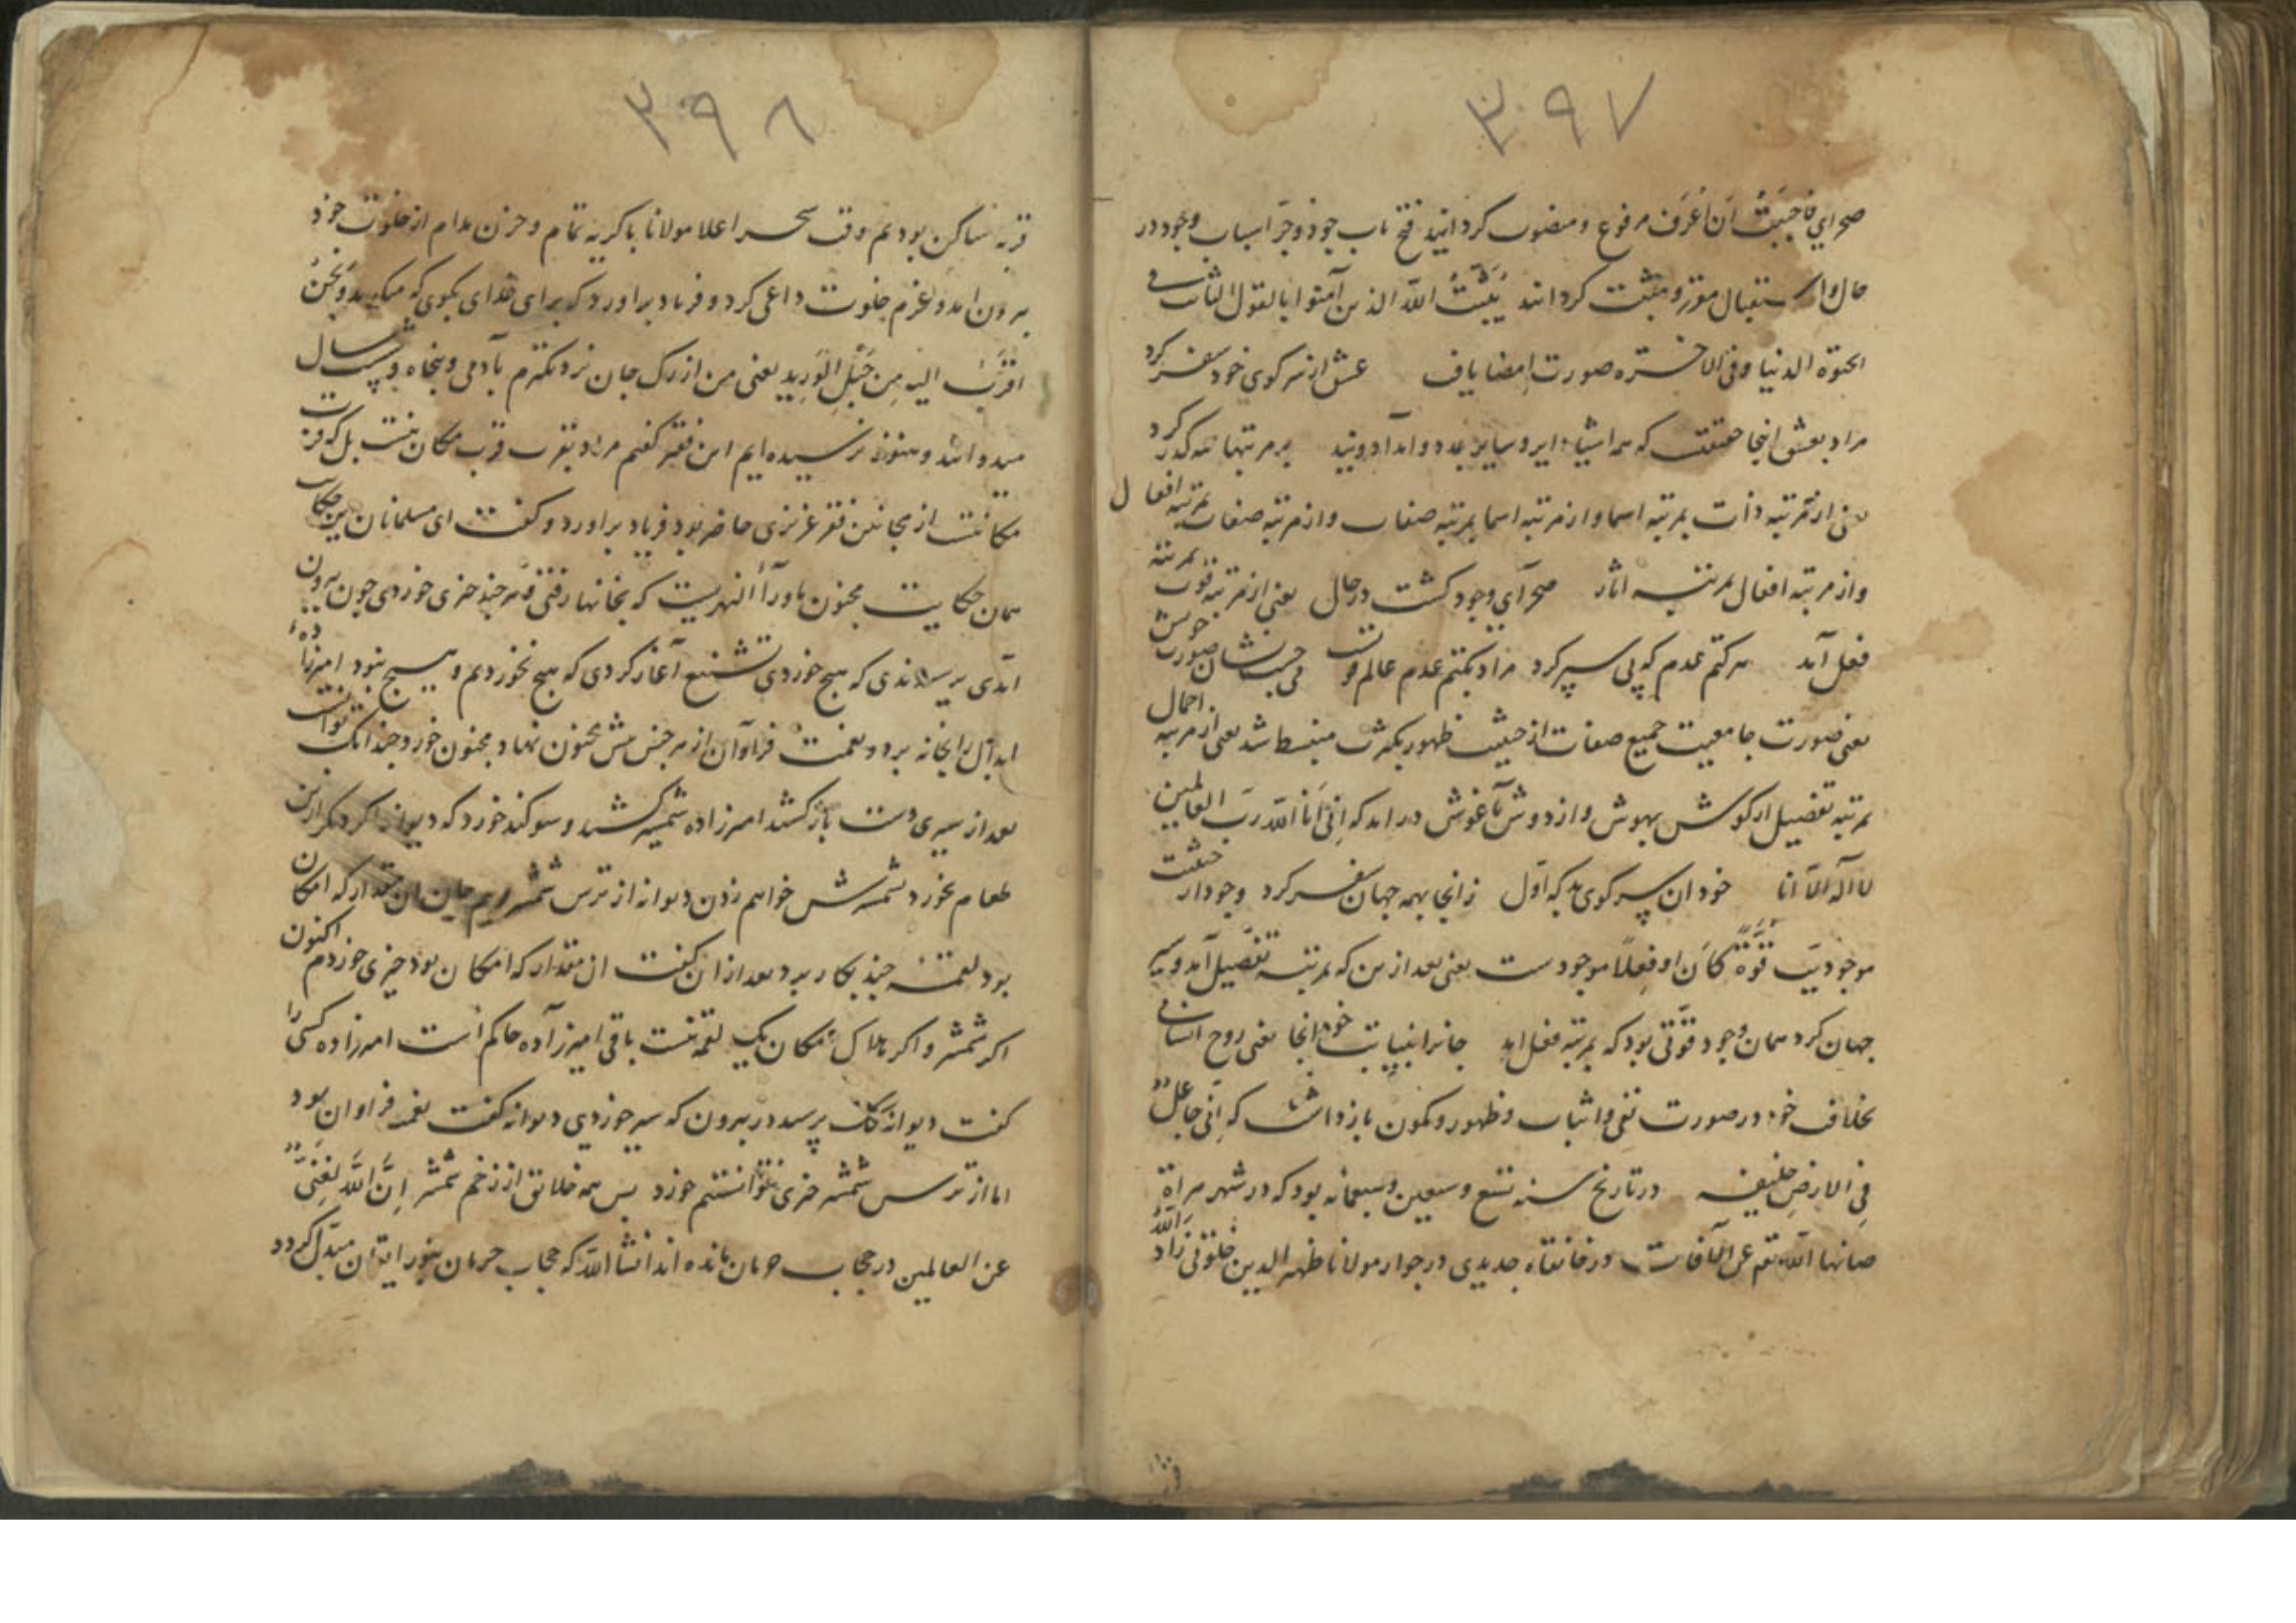 ۳۹۷
صحرای فاحببت ان اعرف مرفوع و منصوب کردانید فتح باب جود و جر اسباب وجود در
حال و استقبال مقرر و مثبت کردانند یُثَبِّتُ الله الذین آمنوا بالقول الثابت فی
الحیوة الدنیا و فی الاخره صورت امضا یافت عشق از سر کوی خود سفر کرد
مراد بعشق اینجا حقیقتست که همه اشیاء دایر و سایر بدو و اند بر مرتبها همه گذر کرد
یعنی از مرتبه ذات بمرتبه اسما و از مرتبه اسما بمرتبه صفات و از مرتبه صفات بمرتبه افعال
و از مرتبه افعال بمرتبه اثار صحرای وجود کشت در حال یعنی از مرتبه قوت بمرتبه
فعل آمد هر کتم عدم که پی سپر کرد مراد بکتم عدم عالم صورت
یعنی صورت جامعیت جمیع صفات از حیثیت ظهور بکثرت منبسط شد یعنی از مرتبه اجمال
بمرتبه تفصیل از کوش بهوش و از دوش بآغوش در امد که اِنّی اَنَا الله ربّ العالمین
لا اله الا انا خود ان سر کوی بد که اول زانجا بهمه جهان سفر کرد وجود از حیثیت
موجودیت قُوّةً کانَ او فعلاً موجودست یعنی بعد از من که بمرتبه تفصیل آمد و سیر
جهان کرد همان وجود قوّتی بود که بمرتبه فعل امد جانرا بنیابت خود انجا یعنی روح انسانی
بخلاف خود در صورت نفی و اثبات و ظهور و کمون بازداشت که اِنّی جاعلٌ
فی الارض خلیفه در تاریخ سنه تسع و سبعین و سبعمائه بود که در شهر هراة
صانها الله تعم عن الآفات در خانقاه جدیدی در جوار مولانا ظهیر الدین خلوتی زاد الله
۳۹۸
قربه ساکن بودیم وقت سحر اعلا مولانا با کریه تمام و حزن مدام از خلوت خود
بیرون امد و عزم خلوت داعی کرد و فریاد براورد که برای خدای بکوی که میکوید و نحنُ
اقربُ الیه مِن حَبْلِ الوَرید یعنی من از رک جان نزدیکترم بآدمی و پنجاه و پنج سال
میدواند و هنوز نرسیده ایم این فقیر کفتم مراد بقرب قرب مکان نیست بل که قربت
مکانتست از مجانین فقر عزیزی حاضر بود فریاد براورد و کفت ای مسلمانان این حکایت
همان حکایت مجنون ماوراء النهریست که بخانها رفتی و هر چیز خوردی چون بیرون
آمدی پرسیدندی که هیچ خوردی تشنیع آغاز کردی که هیچ نخوردم و هیچ نبود امیرزاده
ابدال را بخانه برد و نعمت فراوان از هر جنس پیش مجنون نهاد و مجنون خورد چندانک توانست
بعد از سیری دست باز کشید امیرزاده شمشیر کشید و سوکند خورد که دیوانه اکر دیگر ازین
طعام نخورد شمشیرش خواهم زدن دیوانه از ترس شمشیر و بیم جان ان مقدار که امکان
بود لقمه چند بکار برد بعد از ان کفت ان مقدار که امکان بود چیزی خوردم اکنون
اکر شمشیر و اکر هلاک امکان یک لقمه نیست باقی امیرزاده حاکم است امیرزاده کسی را
کفت دیوانه پرسید در بیرون که سیر خوردی دیوانه کفت نعمه فراوان بود
اما از ترس شمشیر چیزی نتوانستم خورد پس همه خلایق از زخم شمشیر اِنَّ اللهَ لَغَنِیٌّ
عن العالمین در حجاب حرمان مانده اند انشا الله که حجاب حرمان بنور ایمان مبدل کردد